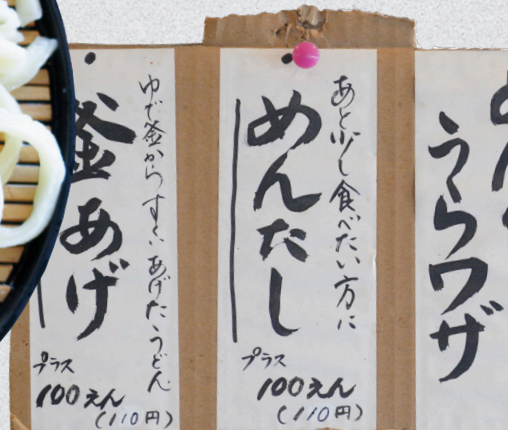 うらワザ
あと少し食べたい方に
めんたし
プラス
100えん
(110円)
ゆで釜からすくいあげたうどん
釜あげ
プラス
100えん
(110円)